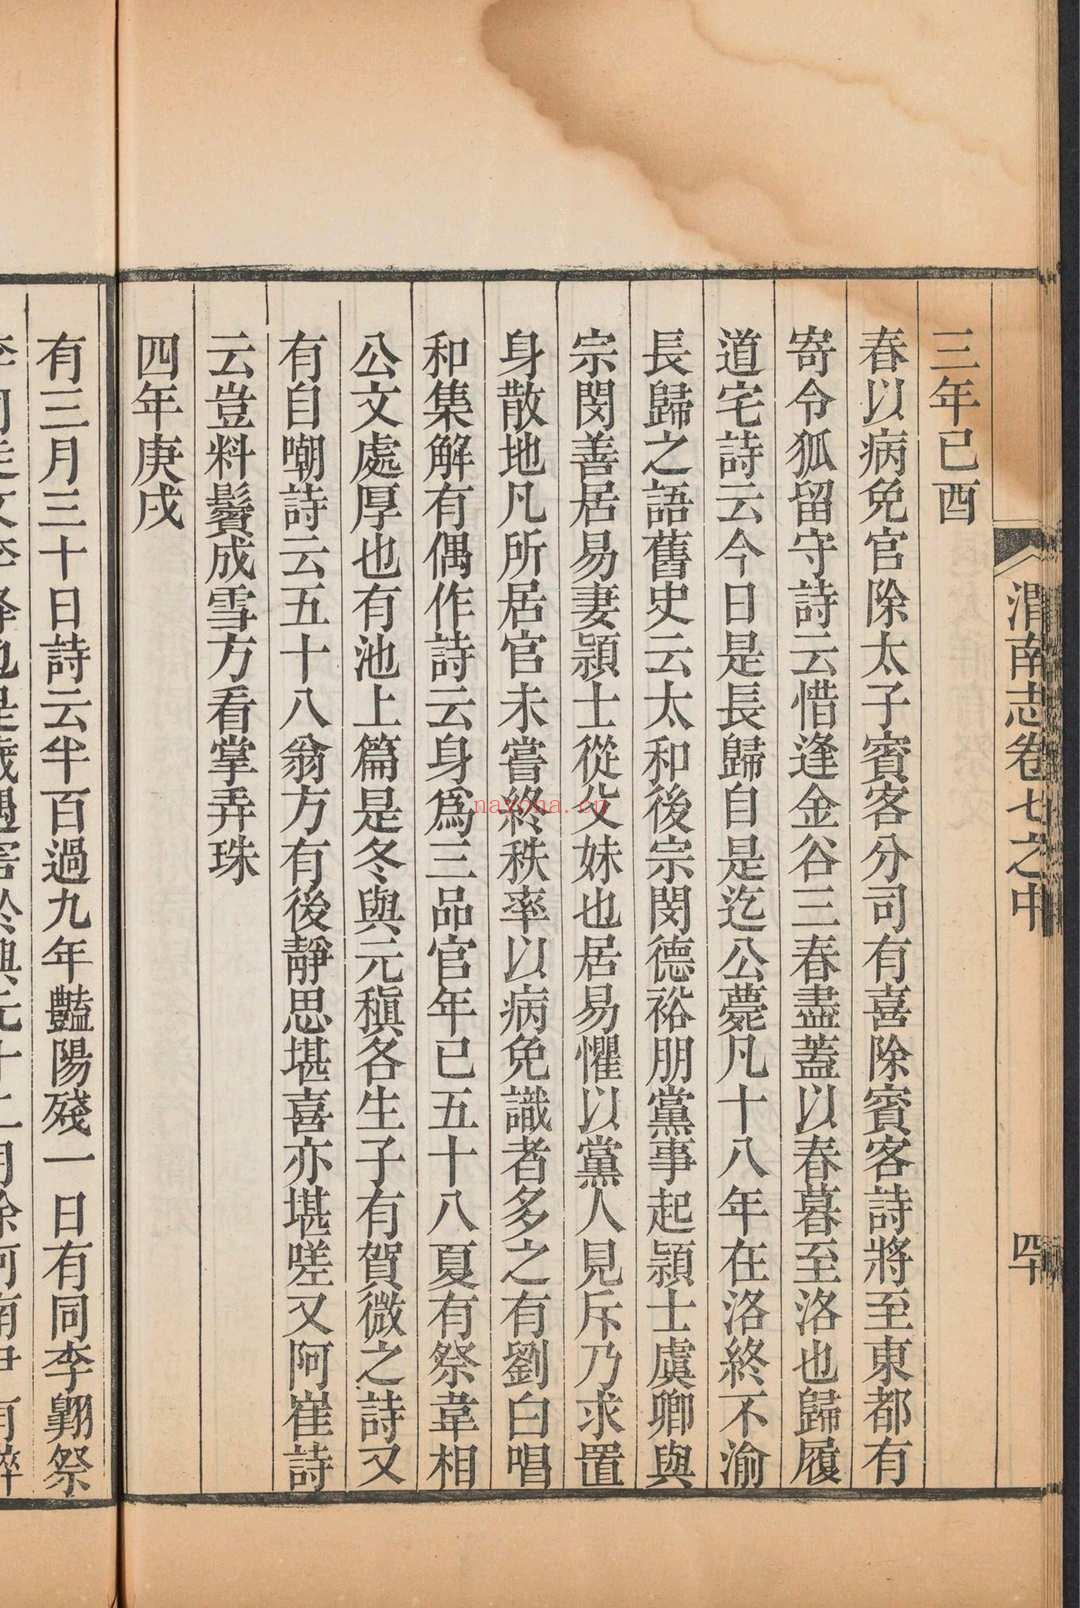 渭南志卷七之中
四十
三年己酉
春以病免官除太子賓客分司有喜除賓客詩將至東都有
寄令狐留守詩云惜逢金谷三春盡蓋以春暮至洛也歸履
道宅詩云今日是長歸自是迄公薨凡十八年在洛終不渝
長歸之語舊史云太和後宗閔德裕朋黨事起潁士虞卿與
宗閔善居易妻潁士從父妹也居易懼以黨人見斥乃求置
身散地凡所居官未嘗終秩率以病免識者多之有劉白唱
和集解有偶作詩云身爲三品官年已五十八夏有祭韋相
公文處厚也有池上篇是冬與元稹各生子有賀微之詩又
有自嘲詩云五十八翁方有後靜思堪喜亦堪嗟又阿崔詩
云豈料鬢成雪方看掌弄珠
四年庚戌
有三月三十日詩云半百過九年豔陽殘一日有同李翺祭
nazona.cn